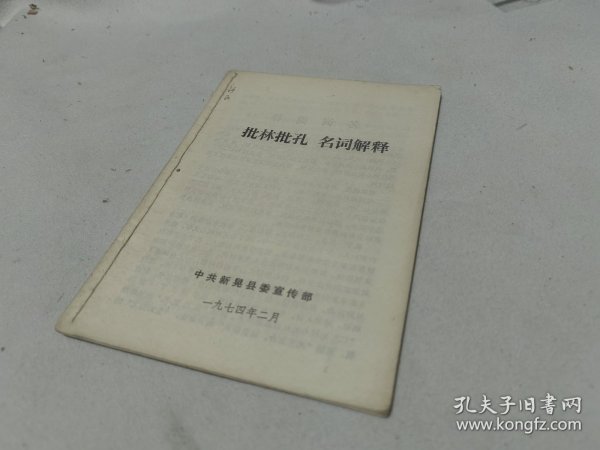 批林批孔 名词解释
中共新晃县委宣传部
一九七四年二月
孔夫子旧书网
www.kongfz.com